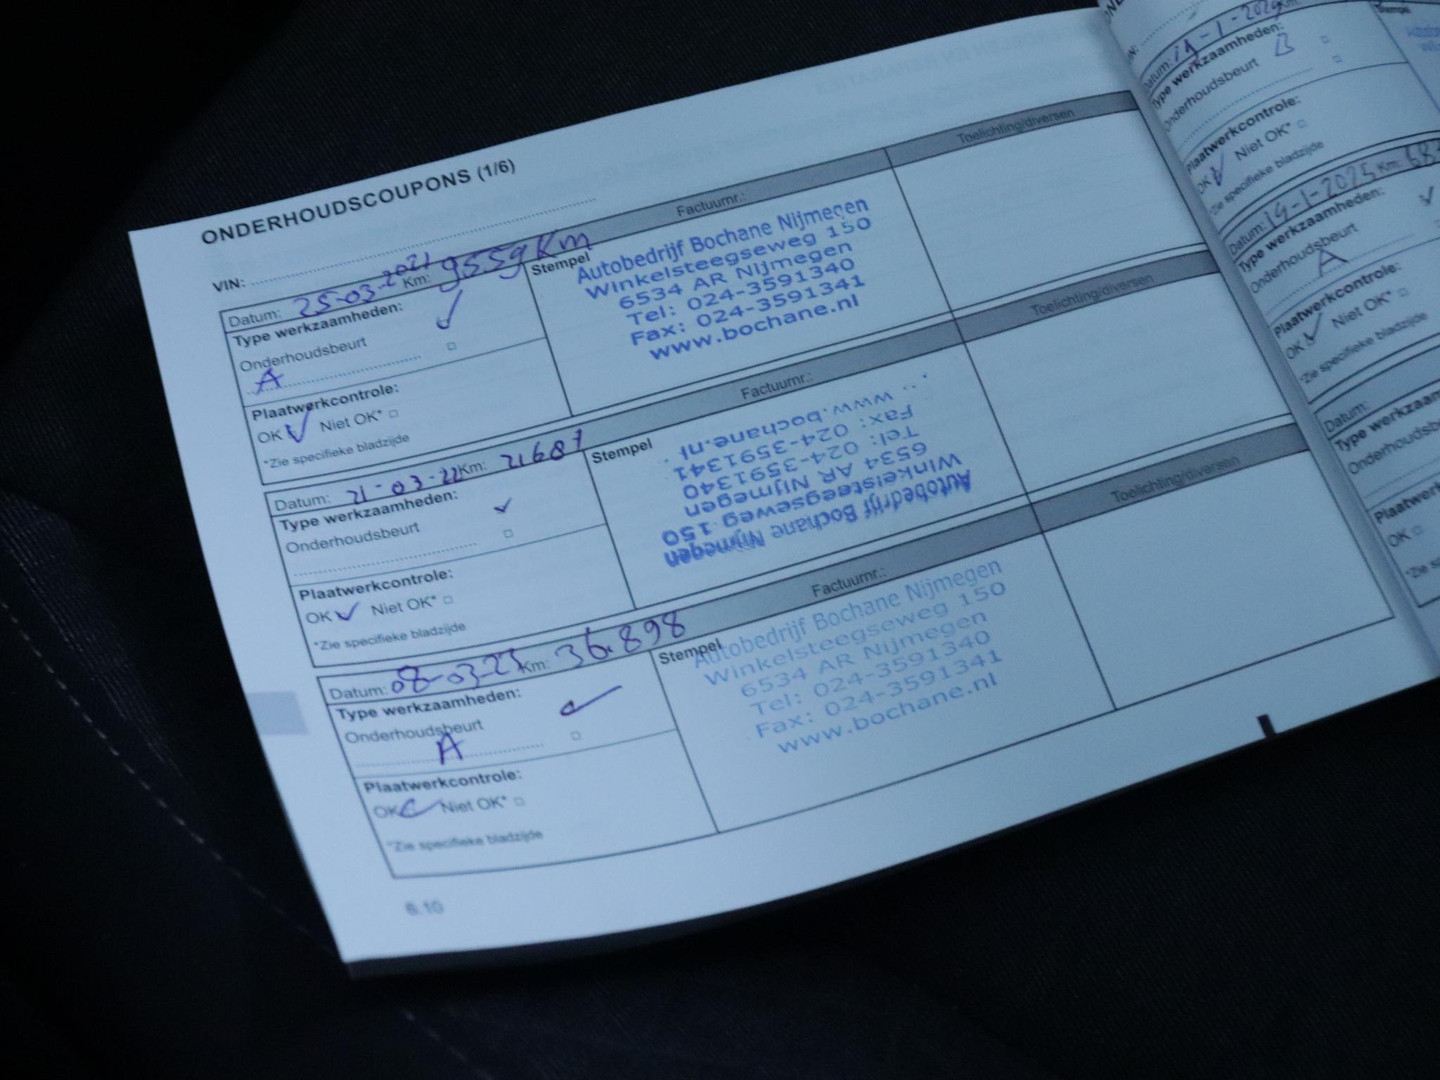 ONDERHOUDSCOUPONS (1/6)
VIN:
Datum: 25-03-2021 Km: 9559 Km Factuurnr.: Toelichting/diversen
Type werkzaamheden:
Onderhoudsbeurt
A
Plaatwerkcontrole:
OK Niet OK*
*Zie specifieke bladzijde
Stempel
Autobedrijf Bochane Nijmegen
Winkelsteegseweg 150
6534 AR Nijmegen
Tel: 024-3591340
Fax: 024-3591341
www.bochane.nl
Datum: 21-03-22 Km: 21687 Factuurnr.: Toelichting/diversen
Type werkzaamheden:
Onderhoudsbeurt
Plaatwerkcontrole:
OK Niet OK*
*Zie specifieke bladzijde
Stempel
Autobedrijf Bochane Nijmegen
Winkelsteegseweg 150
6534 AR Nijmegen
Tel: 024-3591340
Fax: 024-3591341
www.bochane.nl
Datum: 08-03-23 Km: 36.898 Factuurnr.: Toelichting/diversen
Type werkzaamheden:
Onderhoudsbeurt
A
Plaatwerkcontrole:
OK Niet OK*
*Zie specifieke bladzijde
Stempel
Autobedrijf Bochane Nijmegen
Winkelsteegseweg 150
6534 AR Nijmegen
Tel: 024-3591340
Fax: 024-3591341
www.bochane.nl
6.10
Stempel
Type werkzaamheden:
Onderhoudsbeurt B
Plaatwerkcontrole:
OK Niet OK*
*Zie specifieke bladzijde
Datum: 14-1-2025 Km:
Type werkzaamheden:
Onderhoudsbeurt
A
Plaatwerkcontrole:
OK Niet OK*
*Zie specifieke bladzijde
Datum:
OK